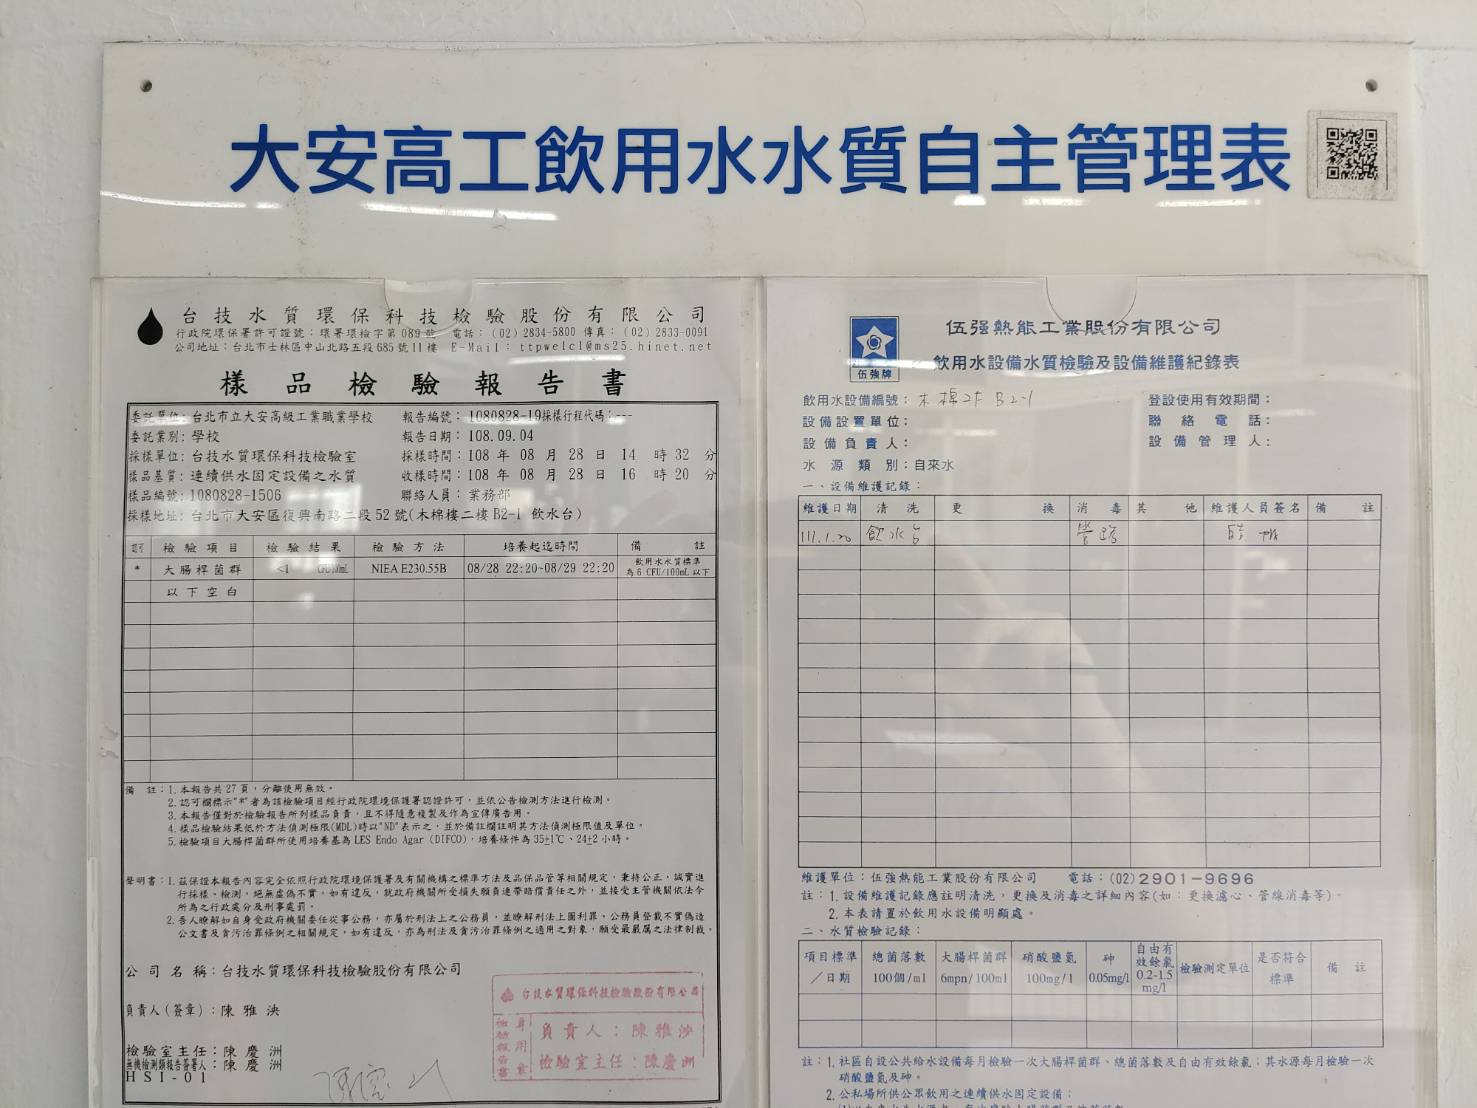 大安高工飲用水水質自主管理表
台技水質環保科技檢驗股份有限公司
行政院環保署許可證號：環署環檢字第089號 電話：(02)2834-5800 傳真：(02)2833-0091
公司地址：台北市士林區中山北路五段685號11樓 E-Mail：ttpwelcl@ms25.hinet.net
樣品檢驗報告書
委託單位：台北市立大安高級工業職業學校 報告編號：1080828-19採樣行程代碼：---
委託業別：學校 報告日期：108.09.04
採樣單位：台技水質環保科技檢驗室 採樣時間：108 年 08 月 28 日 14 時 32 分
樣品基質：連續供水固定設備之水質 收樣時間：108 年 08 月 28 日 16 時 20 分
樣品編號：1080828-1506 聯絡人員：業務部
採樣地址：台北市大安區復興南路二段52號(木棉樓二樓B2-1 飲水台)
認可 檢驗項目 檢驗結果 檢驗方法 培養起迄時間 備註
* 大腸桿菌群 <1 CFU/100mL NIEA E230.55B 08/28 22:20~08/29 22:20 飲用水水質標準為6 CFU/100mL以下
以下空白
備 註：1.本報告共27頁，分離使用無效。
2.認可欄標示"*"者為該檢驗項目經行政院環境保護署認證許可，並依公告檢測方法進行檢測。
3.本報告僅對於檢驗報告所列樣品負責，且不得隨意複製及作為宣傳廣告用。
4.樣品檢驗結果低於方法偵測極限(MDL)時以"ND"表示之，並於備註欄註明其方法偵測極限值及單位。
5.檢驗項目大腸桿菌群所使用培養基為LES Endo Agar (DIFCO)，培養條件為35±1℃、24±2小時。
聲明書：1.茲保證本報告內容完全依照行政院環境保護署及有關機構之標準方法及品保品管等相關規定，秉持公正、誠實進
行採樣、檢測，絕無虛偽不實，如有違反，就政府機關所受損失願負連帶賠償責任之外，並接受主管機關依法令
所為之行政處分及刑事處罰。
2.吾人瞭解如自身受政府機關委任從事公務，亦屬於刑法上之公務員，並瞭解刑法上圖利罪、公務員登載不實偽造
公文書及貪污治罪條例之相關規定，如有違反，亦為刑法及貪污治罪條例之適用之對象，願受最嚴厲之法律制裁。
公司名稱：台技水質環保科技檢驗股份有限公司
負責人(簽章)：陳雅泱
檢驗室主任：陳慶洲
無機檢測類報告簽署人：陳慶洲
HSI-01
台技水質環保科技檢驗股份有限公司
檢驗報告書專用章
負責人：陳雅泱
檢驗室主任：陳慶洲
伍強牌
伍强熱能工業股份有限公司
飲用水設備水質檢驗及設備維護紀錄表
飲用水設備編號：木棉2F B2-1 登設使用有效期間：
設備設置單位： 聯絡電話：
設備負責人： 設備管理人：
水源類別：自來水
一、設備維護記錄：
維護日期 清洗 更換 消毒 其他 維護人員簽名 備註
111.1.20 飲水台 管路
維護單位：伍強熱能工業股份有限公司 電話：(02)2901-9696
註：1.設備維護記錄應註明清洗，更換及消毒之詳細內容(如：更換濾心、管線消毒等)。
2.本表請置於飲用水設備明顯處。
二、水質檢驗記錄：
項目標準／日期 總菌落數100個/ml 大腸桿菌群6mpn/100ml 硝酸鹽氮100mg/l 砷0.05mg/l 自由有效餘氯0.2-1.5mg/l 檢驗測定單位 是否符合標準 備註
註：1.社區自設公共給水設備每月檢驗一次大腸桿菌群、總菌落數及自由有效餘氯；其水源每月檢驗一次
硝酸鹽氮及砷。
2.公私場所供公眾飲用之連續供水固定設備：